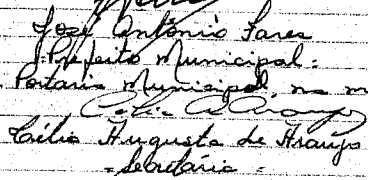 José Antônio Fares
Prefeito Municipal:
Portaria Municipal, na m
Célia Augusta de Araújo
= Secretária =